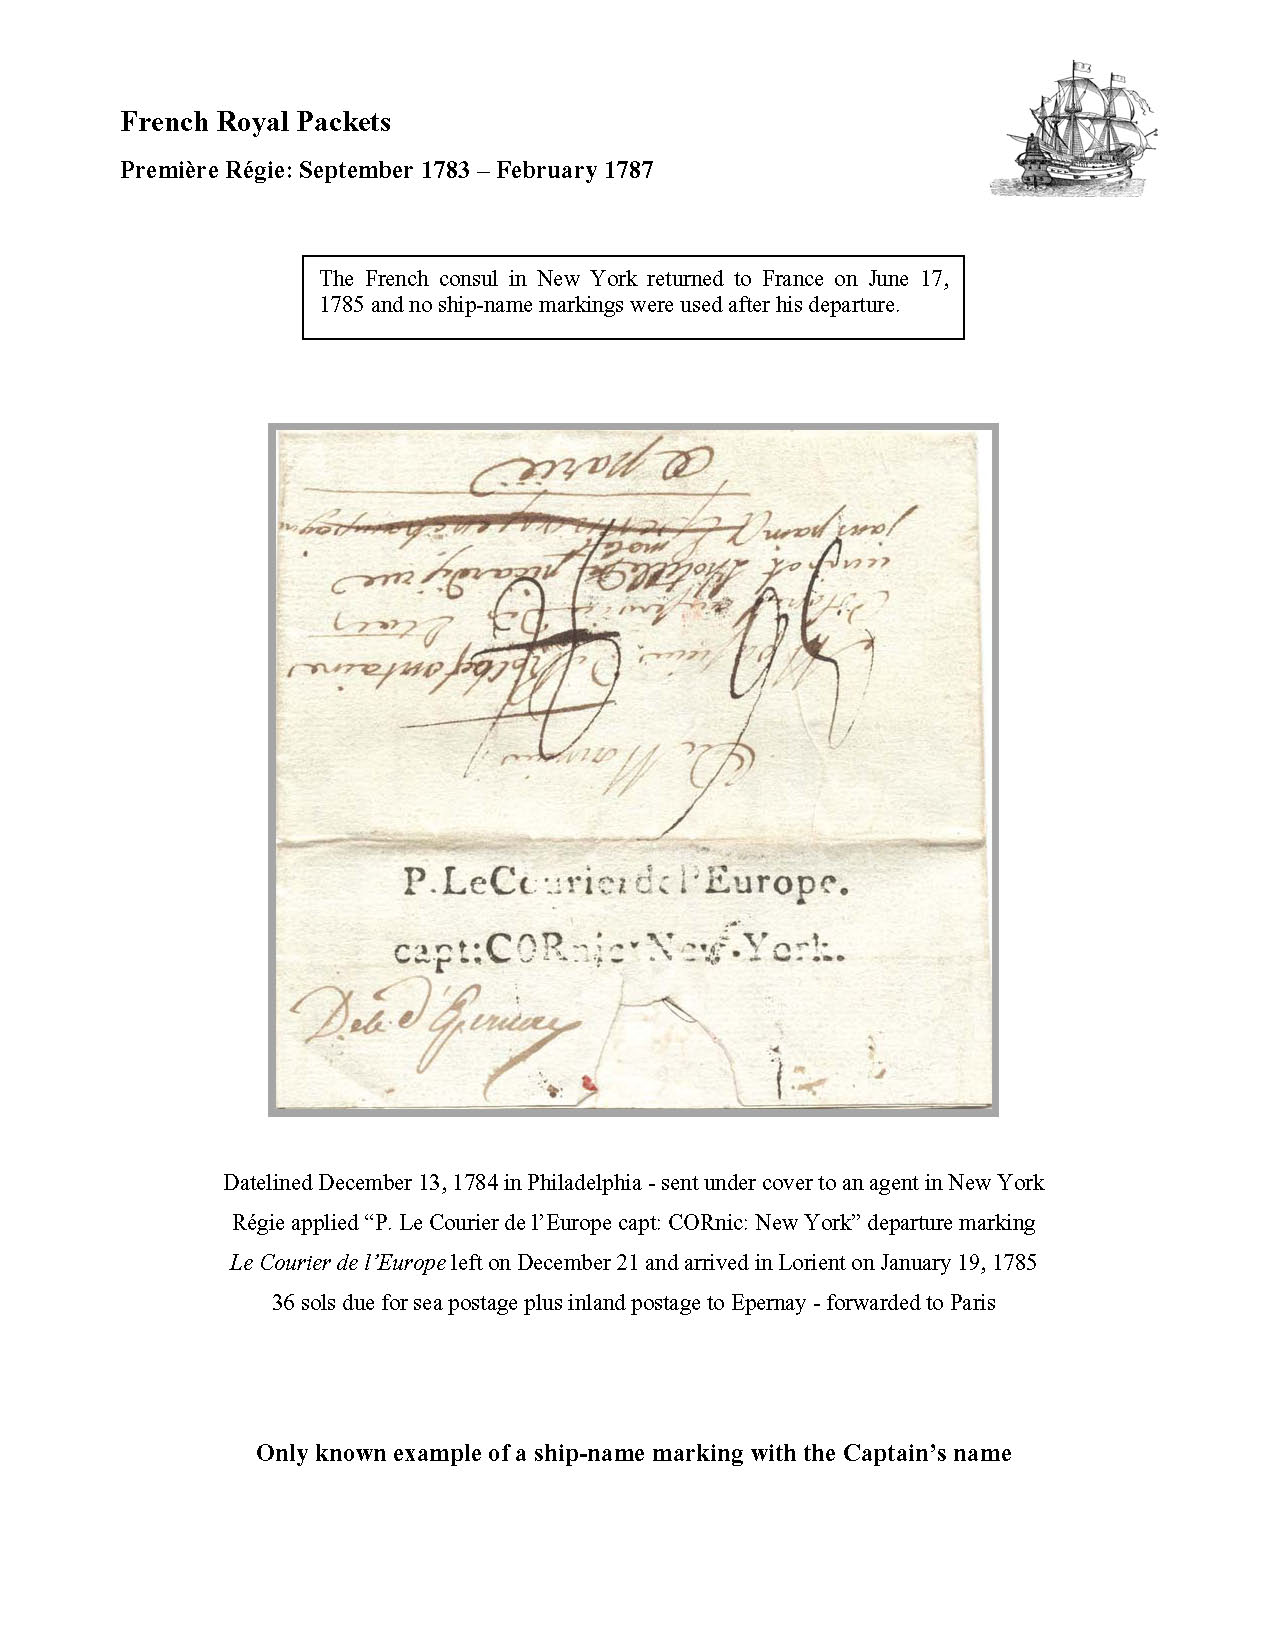 French Royal Packets
Première Régie: September 1783 – February 1787
The French consul in New York returned to France on June 17,
1785 and no ship-name markings were used after his departure.
a paris
P.LeCourierdel'Europe.
capt:CORnic:New.York.
Deb. d'Epernay
Datelined December 13, 1784 in Philadelphia - sent under cover to an agent in New York
Régie applied “P. Le Courier de l’Europe capt: CORnic: New York” departure marking
Le Courier de l’Europe left on December 21 and arrived in Lorient on January 19, 1785
36 sols due for sea postage plus inland postage to Epernay - forwarded to Paris
Only known example of a ship-name marking with the Captain’s name